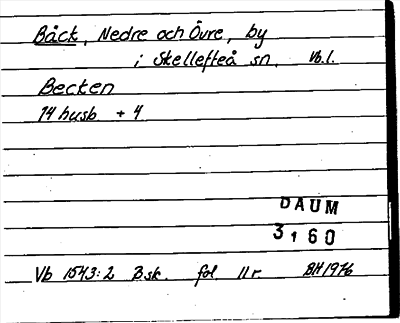 Bäck, Nedre och Övre, by
i Skellefteå sn, Vb.l.
Becken
14 husb. + 4
DAUM
3160
Vb 1543:2 Bsk. fol 11r BH1976